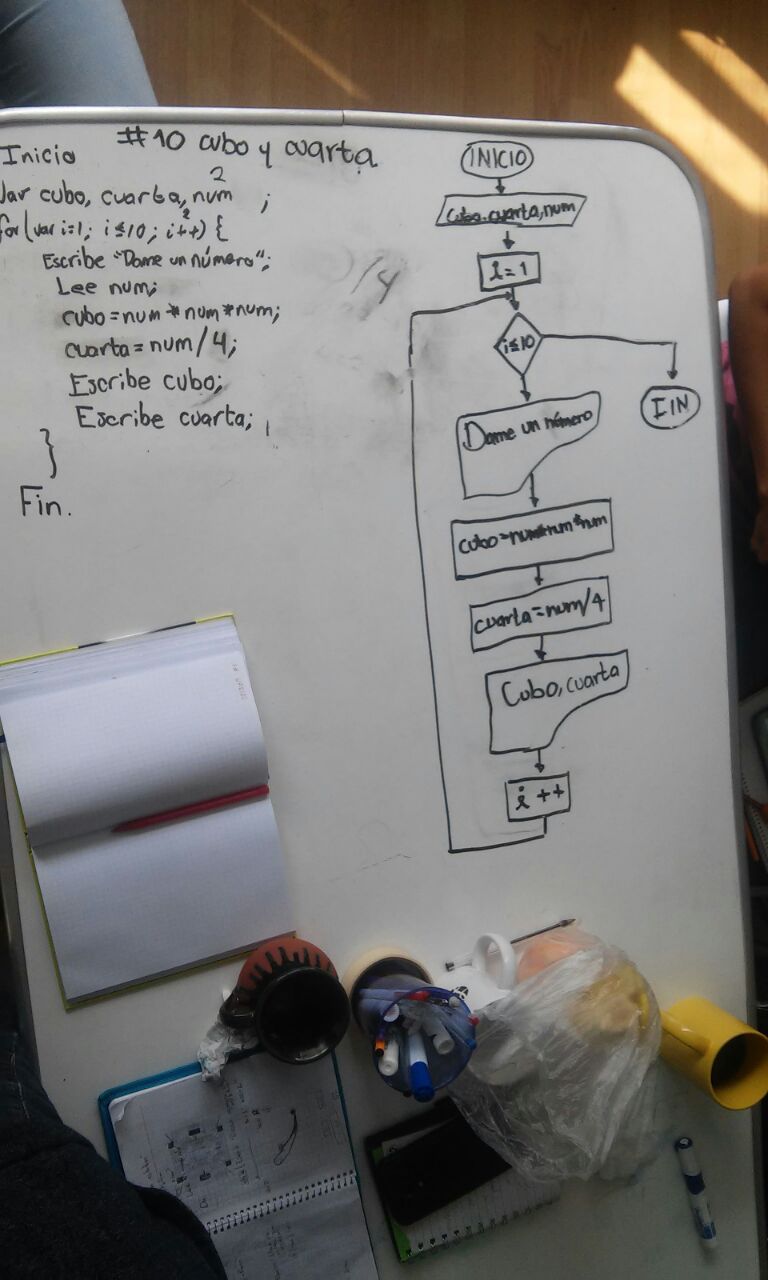 #10 cubo y cuarta
Inicio
Var cubo, cuarta, num ;
2
for(var i=1; i≤10; i++) {
2
Escribe "Dame un número";
Lee num;
cubo=num*num*num;
cuarta=num/4;
Escribe cubo;
Escribe cuarta;
}
Fin.
/4
INICIO
cubo, cuarta, num
i=1
i≤10
FIN
Dame un número
cubo=num*num*num
cuarta=num/4
Cubo, cuarta
i ++